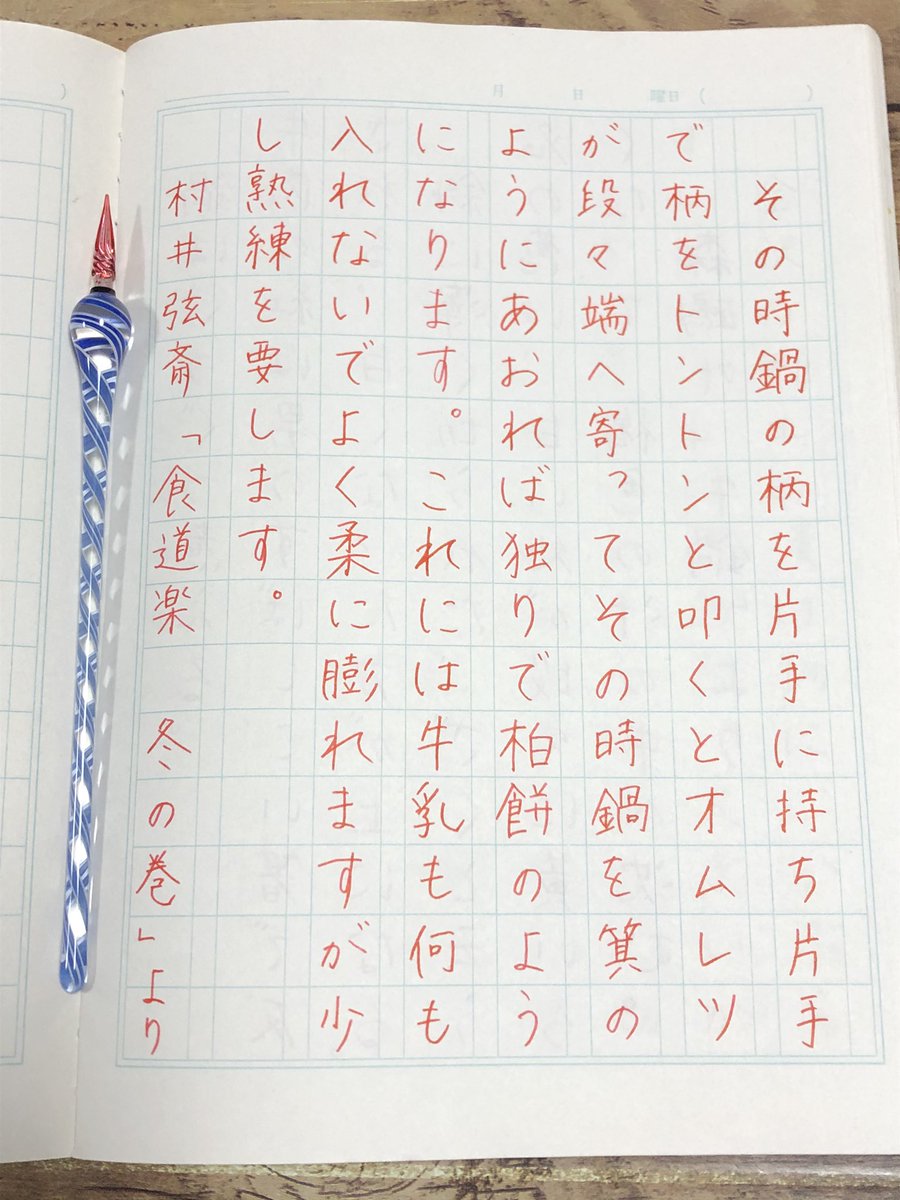 月 日 曜日 ( )
その時鍋の柄を片手に持ち片手
で柄をトントントンと叩くとオムレツ
が段々端へ寄ってその時鍋を箕の
ようにあおれば独りで柏餅のよう
になります。これには牛乳も何も
入れないでよく柔に膨れますが少
し熟練を要します。
村井弦斎「食道楽 冬の巻」より
)